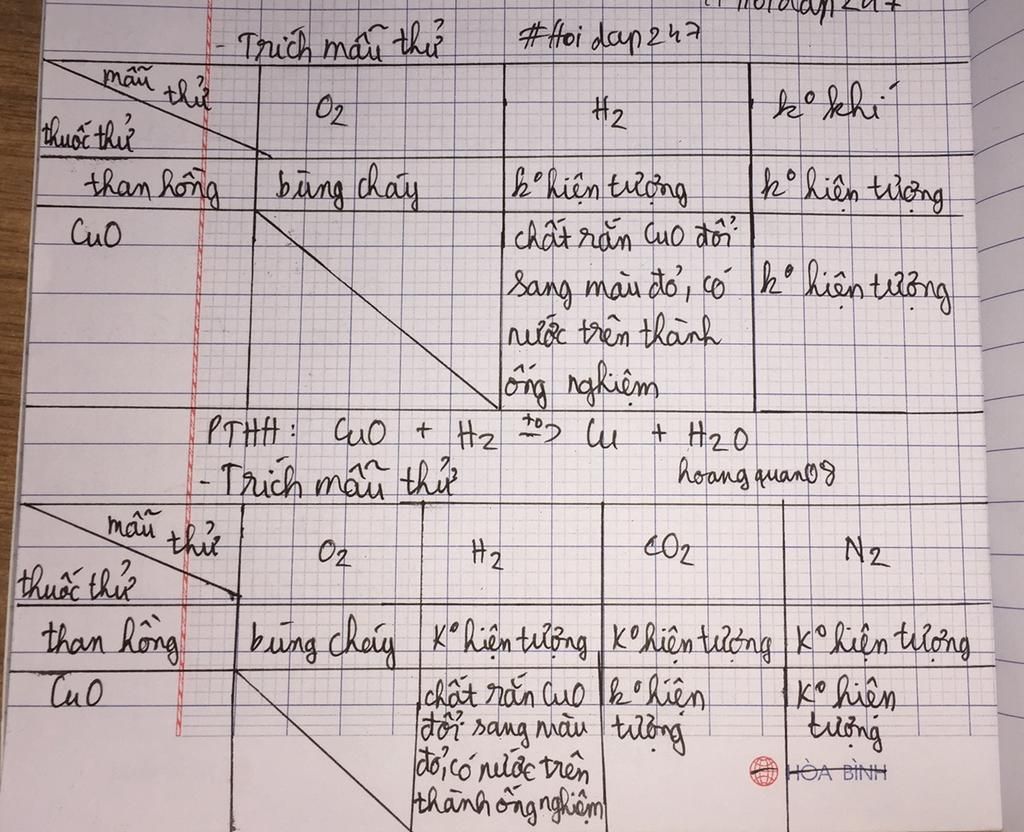 - Trích mẫu thử #Hoidap247
mẫu thử
thuốc thử
O2
H2
k° khí
than hồng
bùng cháy
k° hiện tượng
k° hiện tượng
CuO
chất rắn CuO đổi
sang màu đỏ, có
nước trên thành
ống nghiệm
k° hiện tượng
PTHH: CuO + H2 t0-> Cu + H2O
- Trích mẫu thử hoangquan08
mẫu thử
thuốc thử
O2
H2
CO2
N2
than hồng
bùng cháy
K° hiện tượng
K° hiện tượng
K° hiện tượng
CuO
chất rắn CuO
đổi sang màu
đỏ, có nước trên
thành ống nghiệm
k° hiện
tượng
K° hiện
tượng
HÒA BÌNH